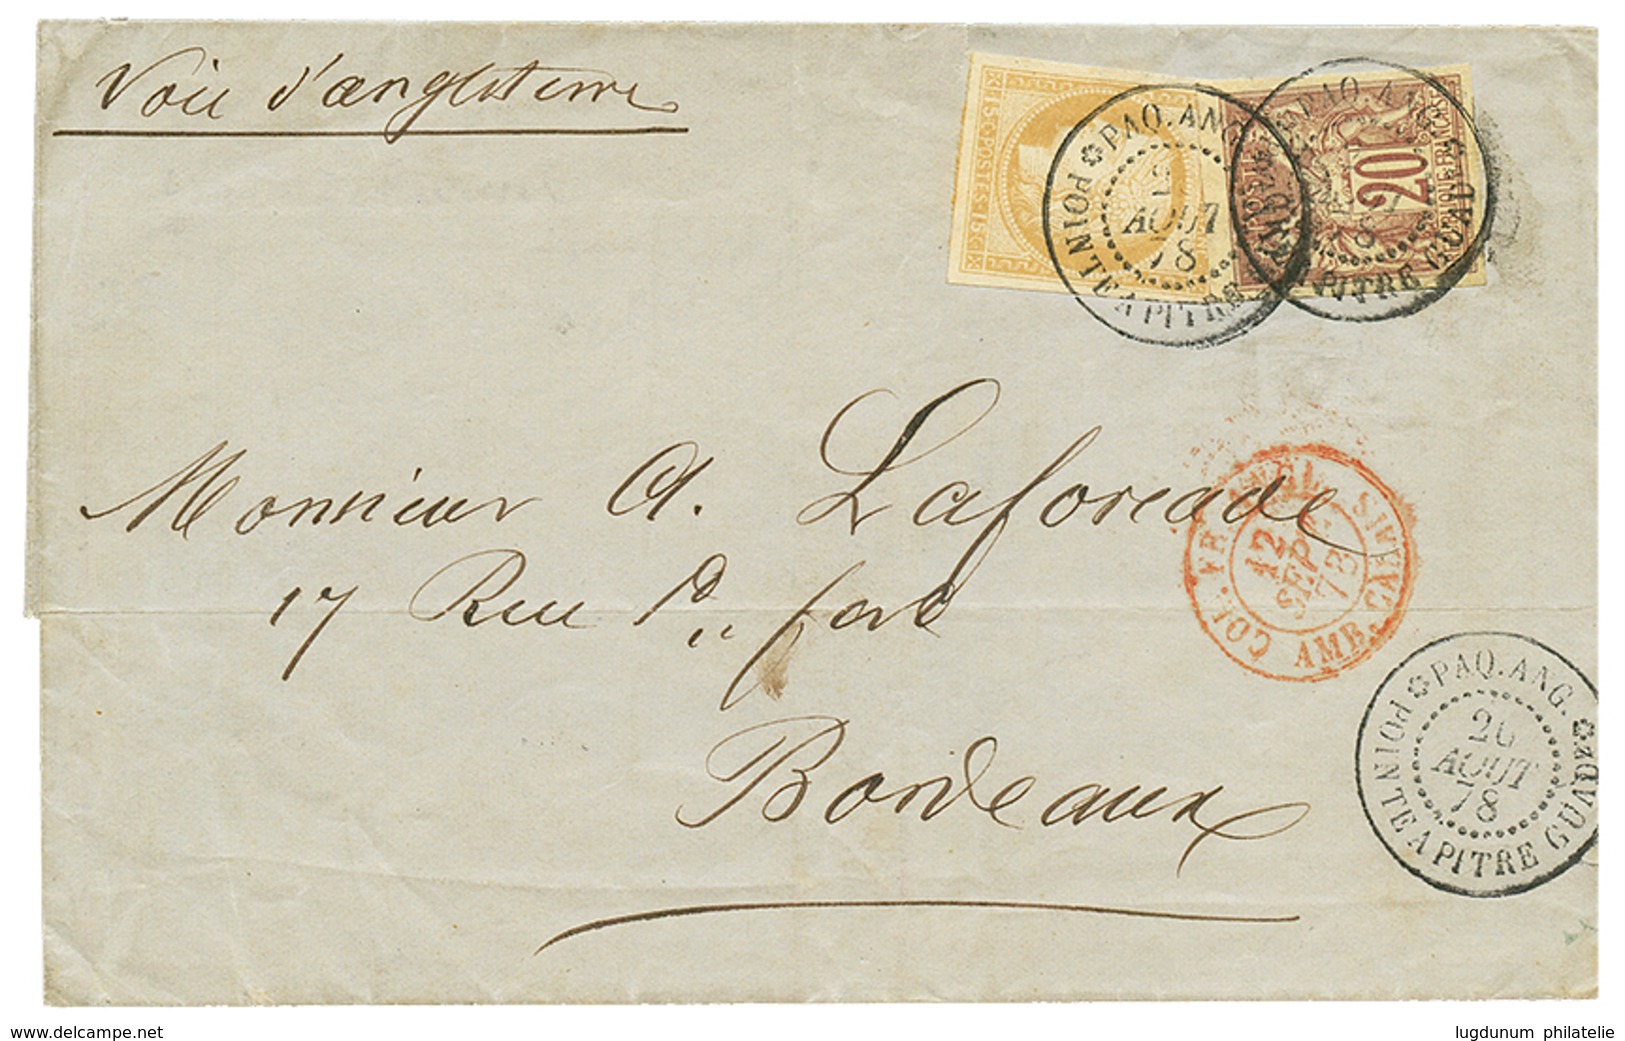 Voie d'angleterre
15c. POSTES 15c.
20
PAQ. ANG.
AOUT
78
POINTE A PITRE
PAQ. ANG.
PITRE GUAD
Monsieur A. Laforcade
17 Rue
Bordeaux
COL. FR. ANGL.
12
SEPT.
78
AMB. CALAIS
PAQ. ANG.
20
AOUT
78
POINTE A PITRE GUADE
www.delcampe.net
lugdunum philatelie